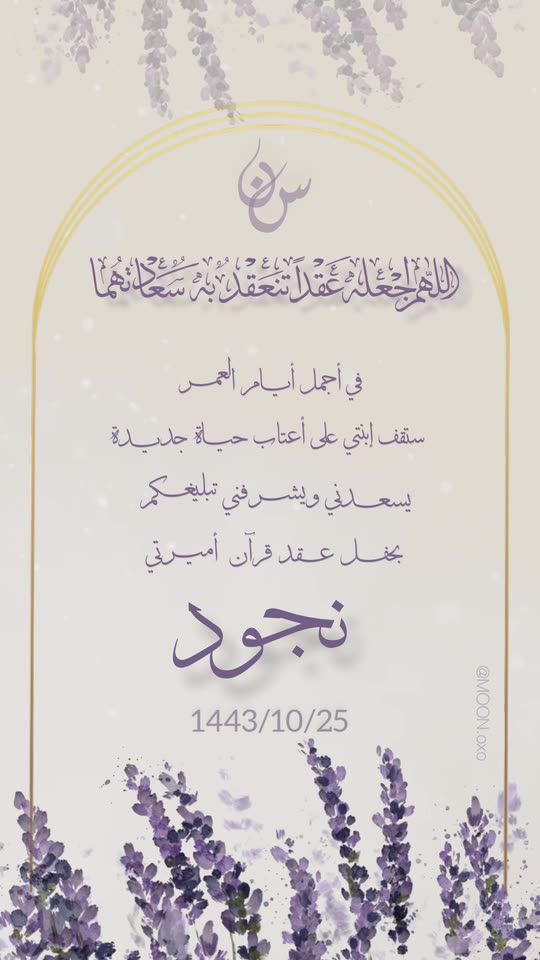 س ن
اللهم اجْعله عَقداً تنعَقدُ به سَعادتهُما
في أجمل أيام العمر
ستقف إبنتي على أعتاب حياة جديدة
يسعدني ويشرفني تبليغكم
بحفل عقد قرآن أميرتي
نجود
1443/10/25
@MOON.oxo